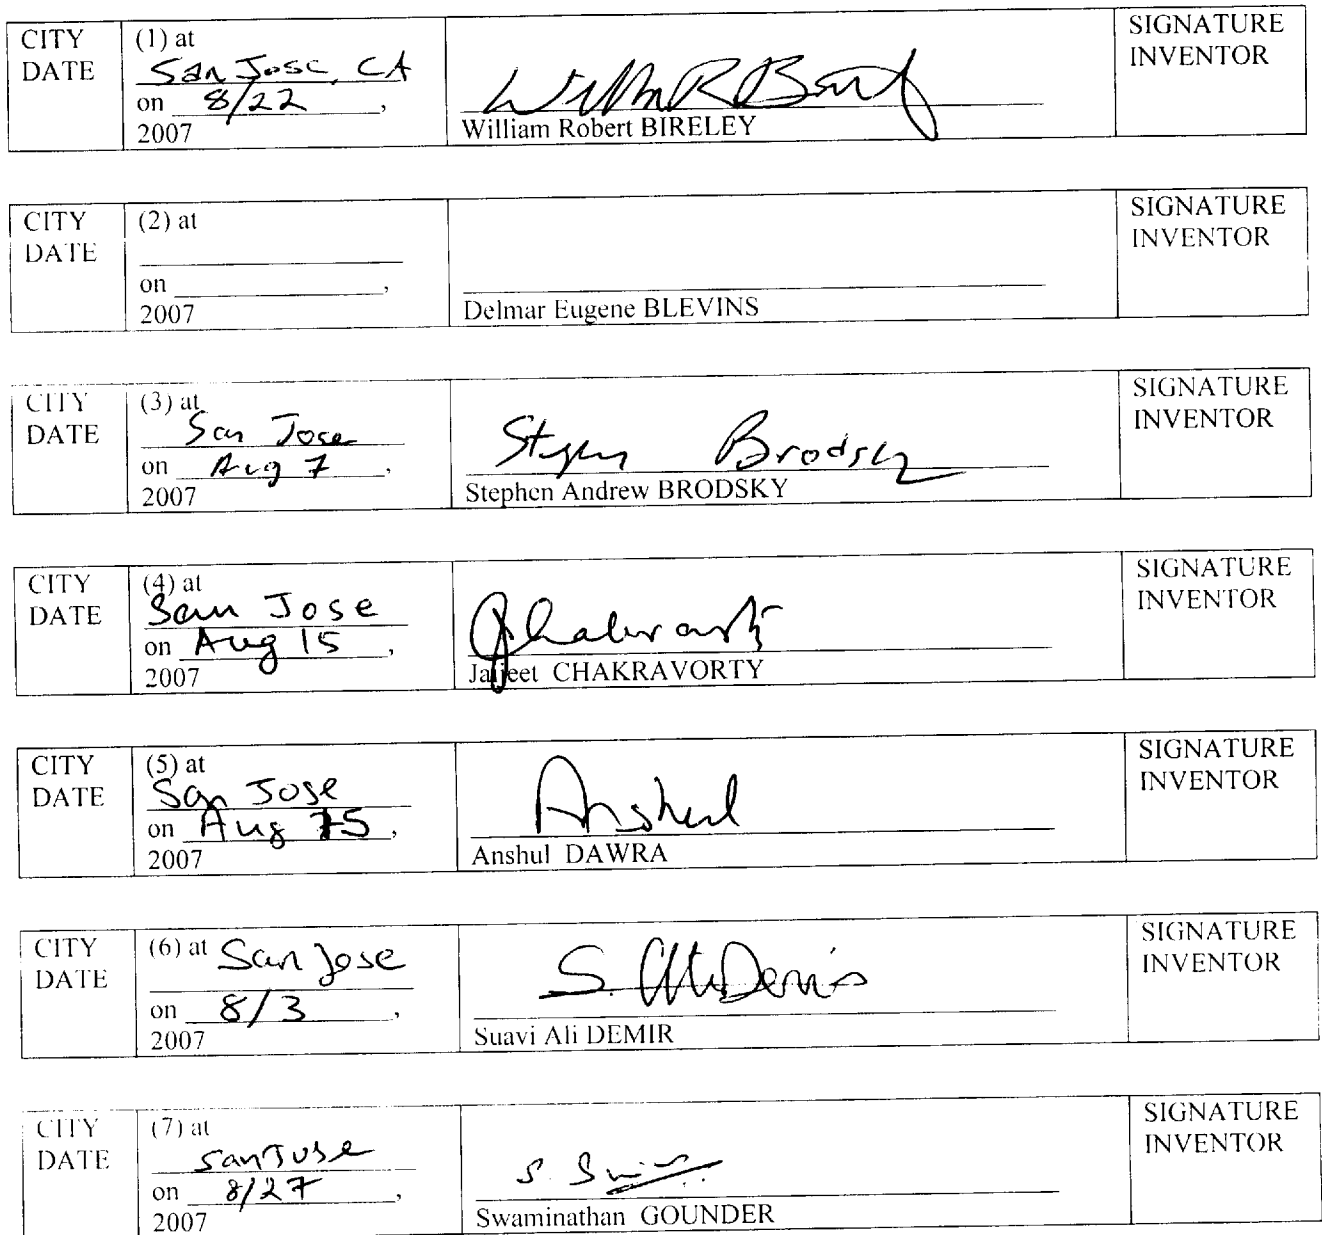 CITY
DATE
(1) at
San Jose, CA
on 8/22,
2007
William Robert BIRELEY
SIGNATURE
INVENTOR
CITY
DATE
(2) at
on ,
2007
Delmar Eugene BLEVINS
SIGNATURE
INVENTOR
CITY
DATE
(3) at
San Jose
on Aug 7,
2007
Stephen Brodsky
Stephen Andrew BRODSKY
SIGNATURE
INVENTOR
CITY
DATE
(4) at
San Jose
on Aug 15,
2007
Jaijeet CHAKRAVORTY
SIGNATURE
INVENTOR
CITY
DATE
(5) at
San Jose
on Aug 15,
2007
Anshul
Anshul DAWRA
SIGNATURE
INVENTOR
CITY
DATE
(6) at San Jose
on 8/3,
2007
Suavi Ali DEMIR
SIGNATURE
INVENTOR
CITY
DATE
(7) at
San Jose
on 8/27,
2007
Swaminathan GOUNDER
SIGNATURE
INVENTOR